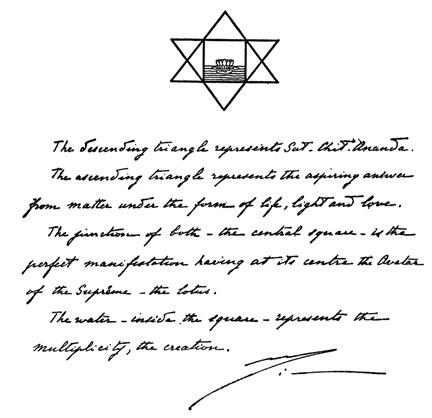 The descending triangle represents Sat-Chit-Ananda.
The ascending triangle represents the aspiring answer
from matter under the form of life, light and love.
The junction of both - the central square - is the
perfect manifestation having at its centre the Avatar
of the Suprême - the lotus.
The water - inside the square - represents the
multiplicity, the creation.